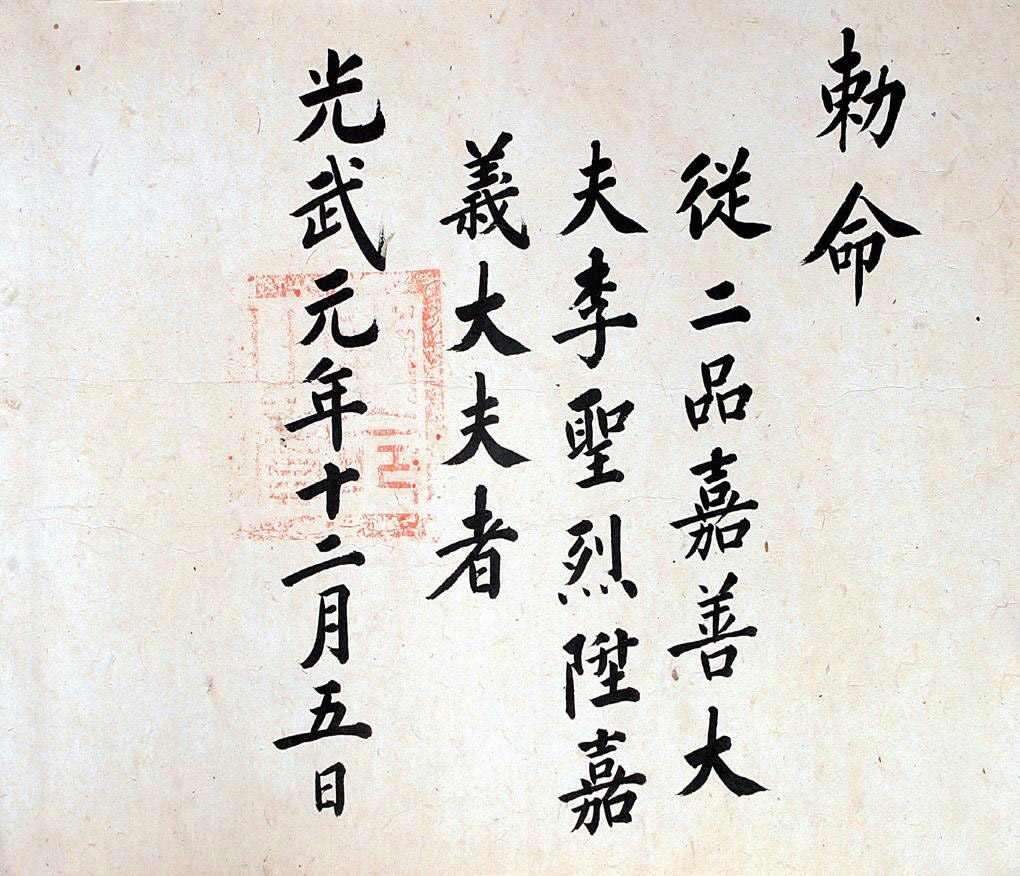 勅命
従二品嘉善大
夫李聖烈陞嘉
義大夫者
光武元年十二月五日